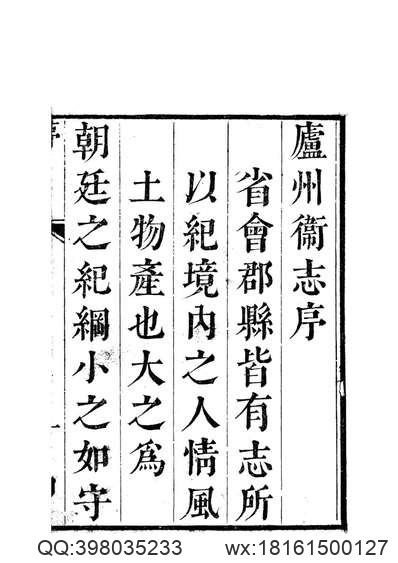 廬州衞志序
省會郡縣皆有志所
以紀境內之人情風
土物產也大之爲
朝廷之紀綱小之如守
QQ:398035233 wx:18161500127